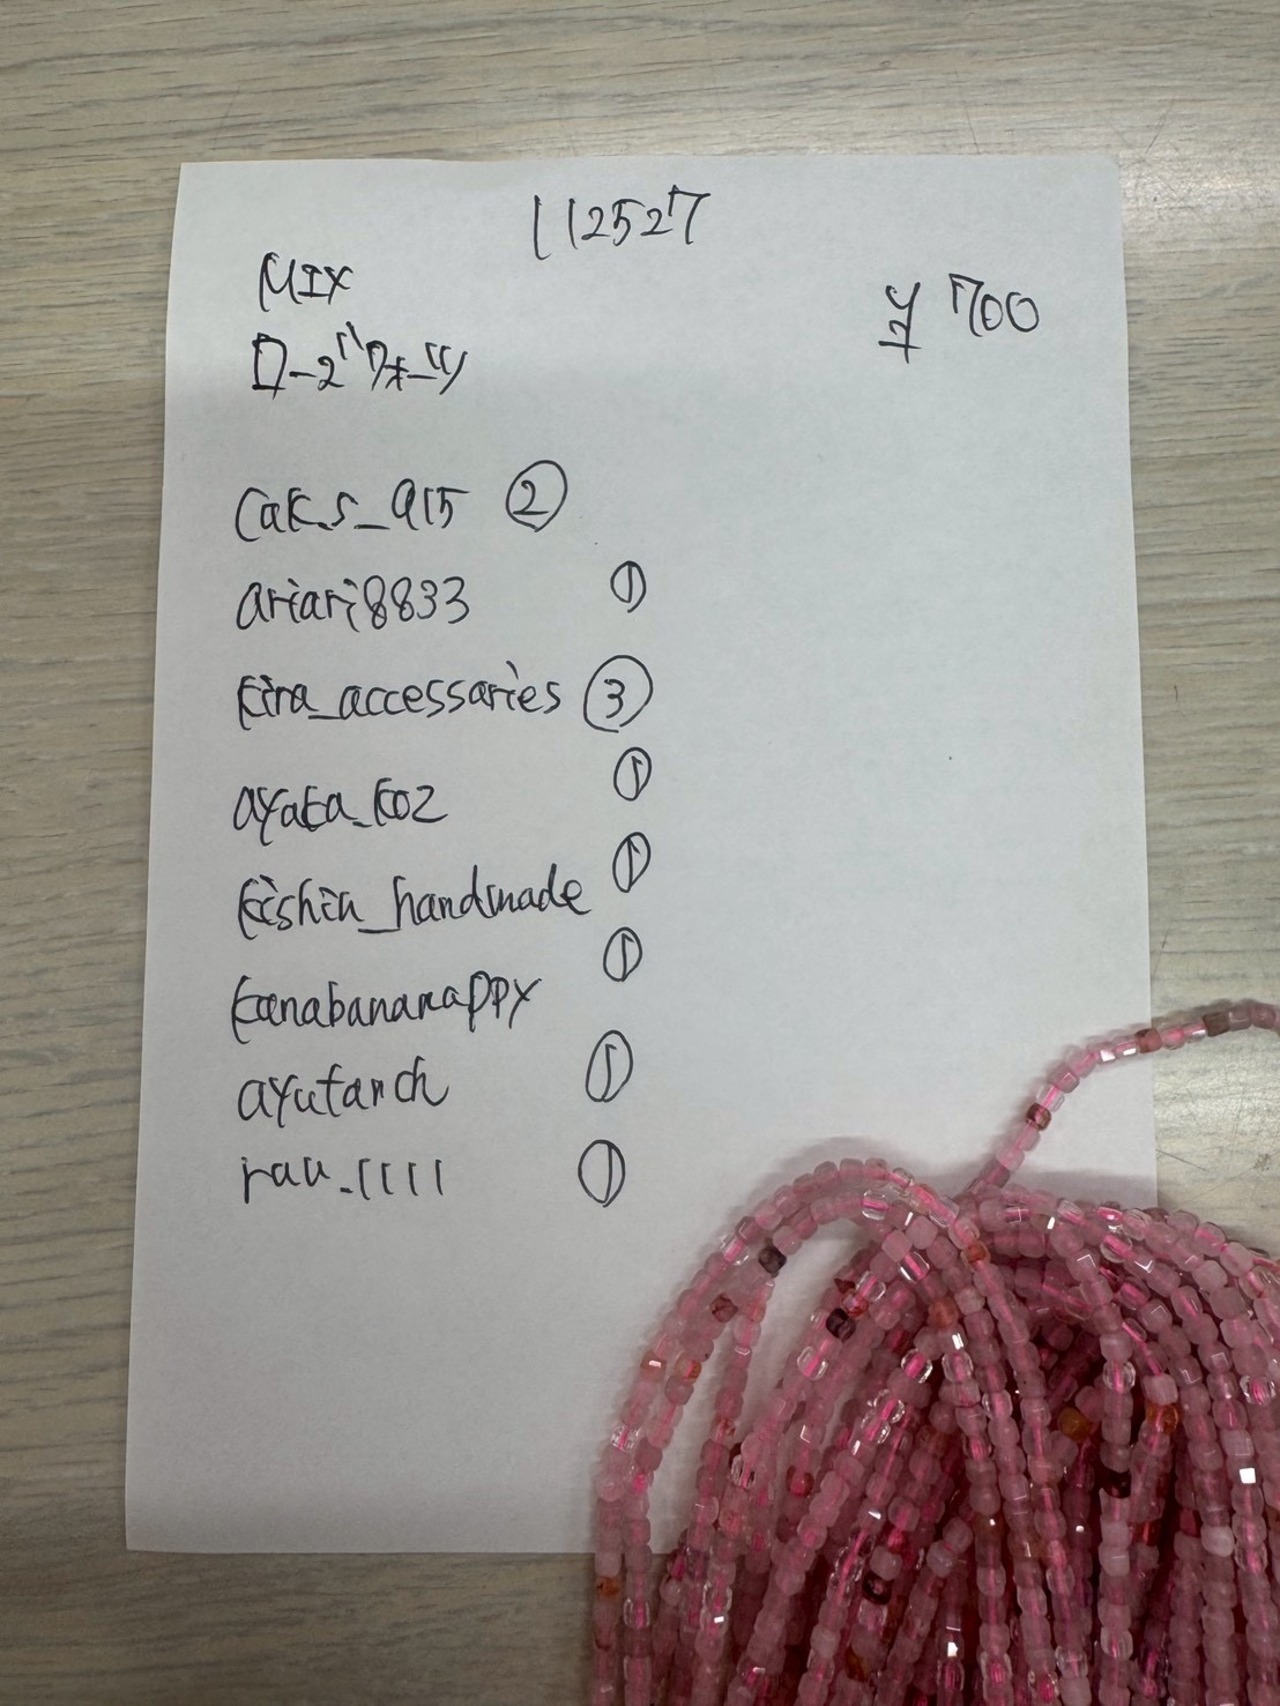 112527
MIX
¥700
ローズクォーツ
caks_915 ②
ariari8833 ①
kira_accessaries ③
ayaka_ko2 ①
kishin_handmade ①
kanabananappy ①
ayutanch ①
rau_1111 ①